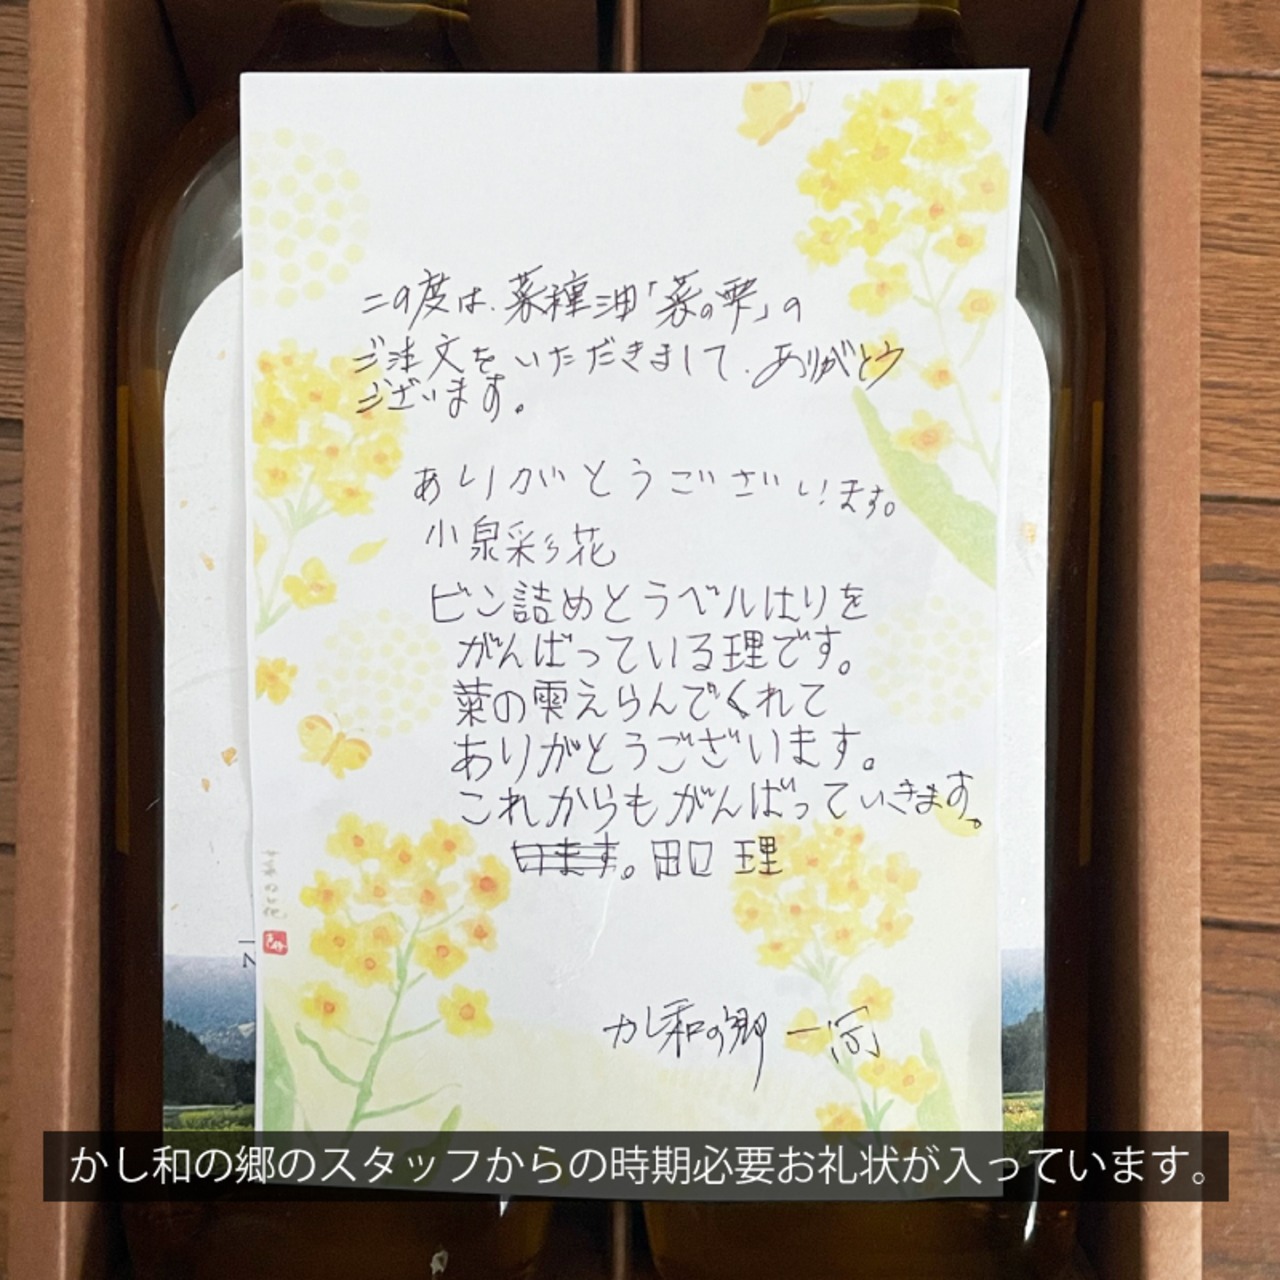 この度は、菜種油「菜の雫」の
ご注文をいただきまして、ありがとう
ございます。
ありがとうございます。
小泉彩花
ビン詰めとラベルはりを
がんばっている理です。
菜の雫えらんでくれて
ありがとうございます。
これからもがんばっていきます。
います。田口 理
かし和の郷 一同
かし和の郷のスタッフからの時期必要お礼状が入っています。